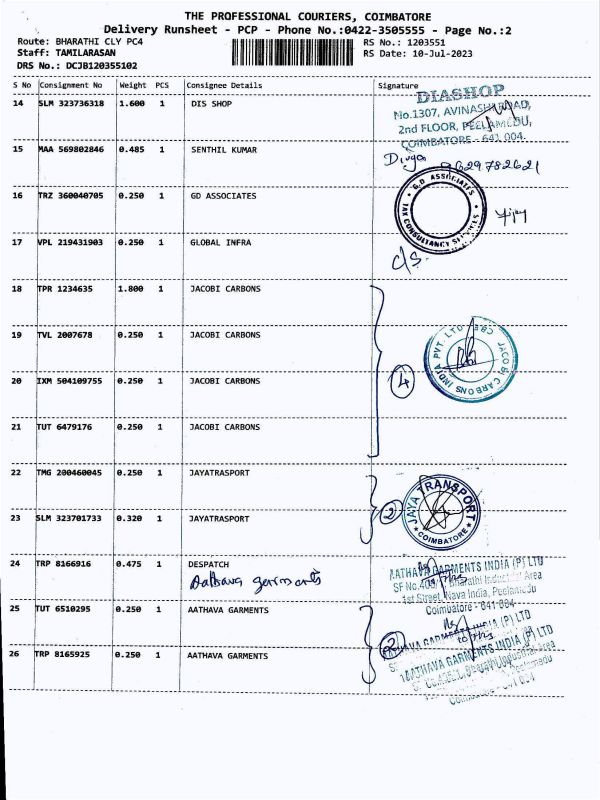 THE PROFESSIONAL COURIERS, COIMBATORE
Delivery Runsheet - PCP - Phone No.:0422-3505555 - Page No.:2
Route: BHARATHI CLY PC4 RS No.: 1203551
Staff: TAMILARASAN RS Date: 10-Jul-2023
DRS No.: DCJB120355102
S No Consignment No Weight PCS Consignee Details Signature
14 SLM 323736318 1.600 1 DIS SHOP
DIASHOP
No.1307, AVINASHI ROAD,
2nd FLOOR, PEELAMEDU,
COIMBATORE - 641 004.
15 MAA 569802846 0.485 1 SENTHIL KUMAR
Divya 9629782621
16 TRZ 360040705 0.250 1 GD ASSOCIATES
G.D ASSOCIATES
TAX CONSULTANCY SERVICES
17 VPL 219431903 0.250 1 GLOBAL INFRA
c/s.
18 TPR 1234635 1.800 1 JACOBI CARBONS
19 TVL 2007678 0.250 1 JACOBI CARBONS
JACOBI CARBONS INDIA PVT. LTD CBE
20 IXM 504109755 0.250 1 JACOBI CARBONS
4
21 TUT 6479176 0.250 1 JACOBI CARBONS
22 TMG 200460045 0.250 1 JAYATRASPORT
2
JAYA TRANSPORT
COIMBATORE
23 SLM 323701733 0.320 1 JAYATRASPORT
24 TRP 8166916 0.475 1 DESPATCH
Aathava garments
AATHAVA GARMENTS INDIA (P) LTD
Bharathi Industrial Area
1st Street, Nava India, Peelamedu
Coimbatore - 641 004
25 TUT 6510295 0.250 1 AATHAVA GARMENTS
2
26 TRP 8165925 0.250 1 AATHAVA GARMENTS
AATHAVA GARMENTS INDIA (P) LTD